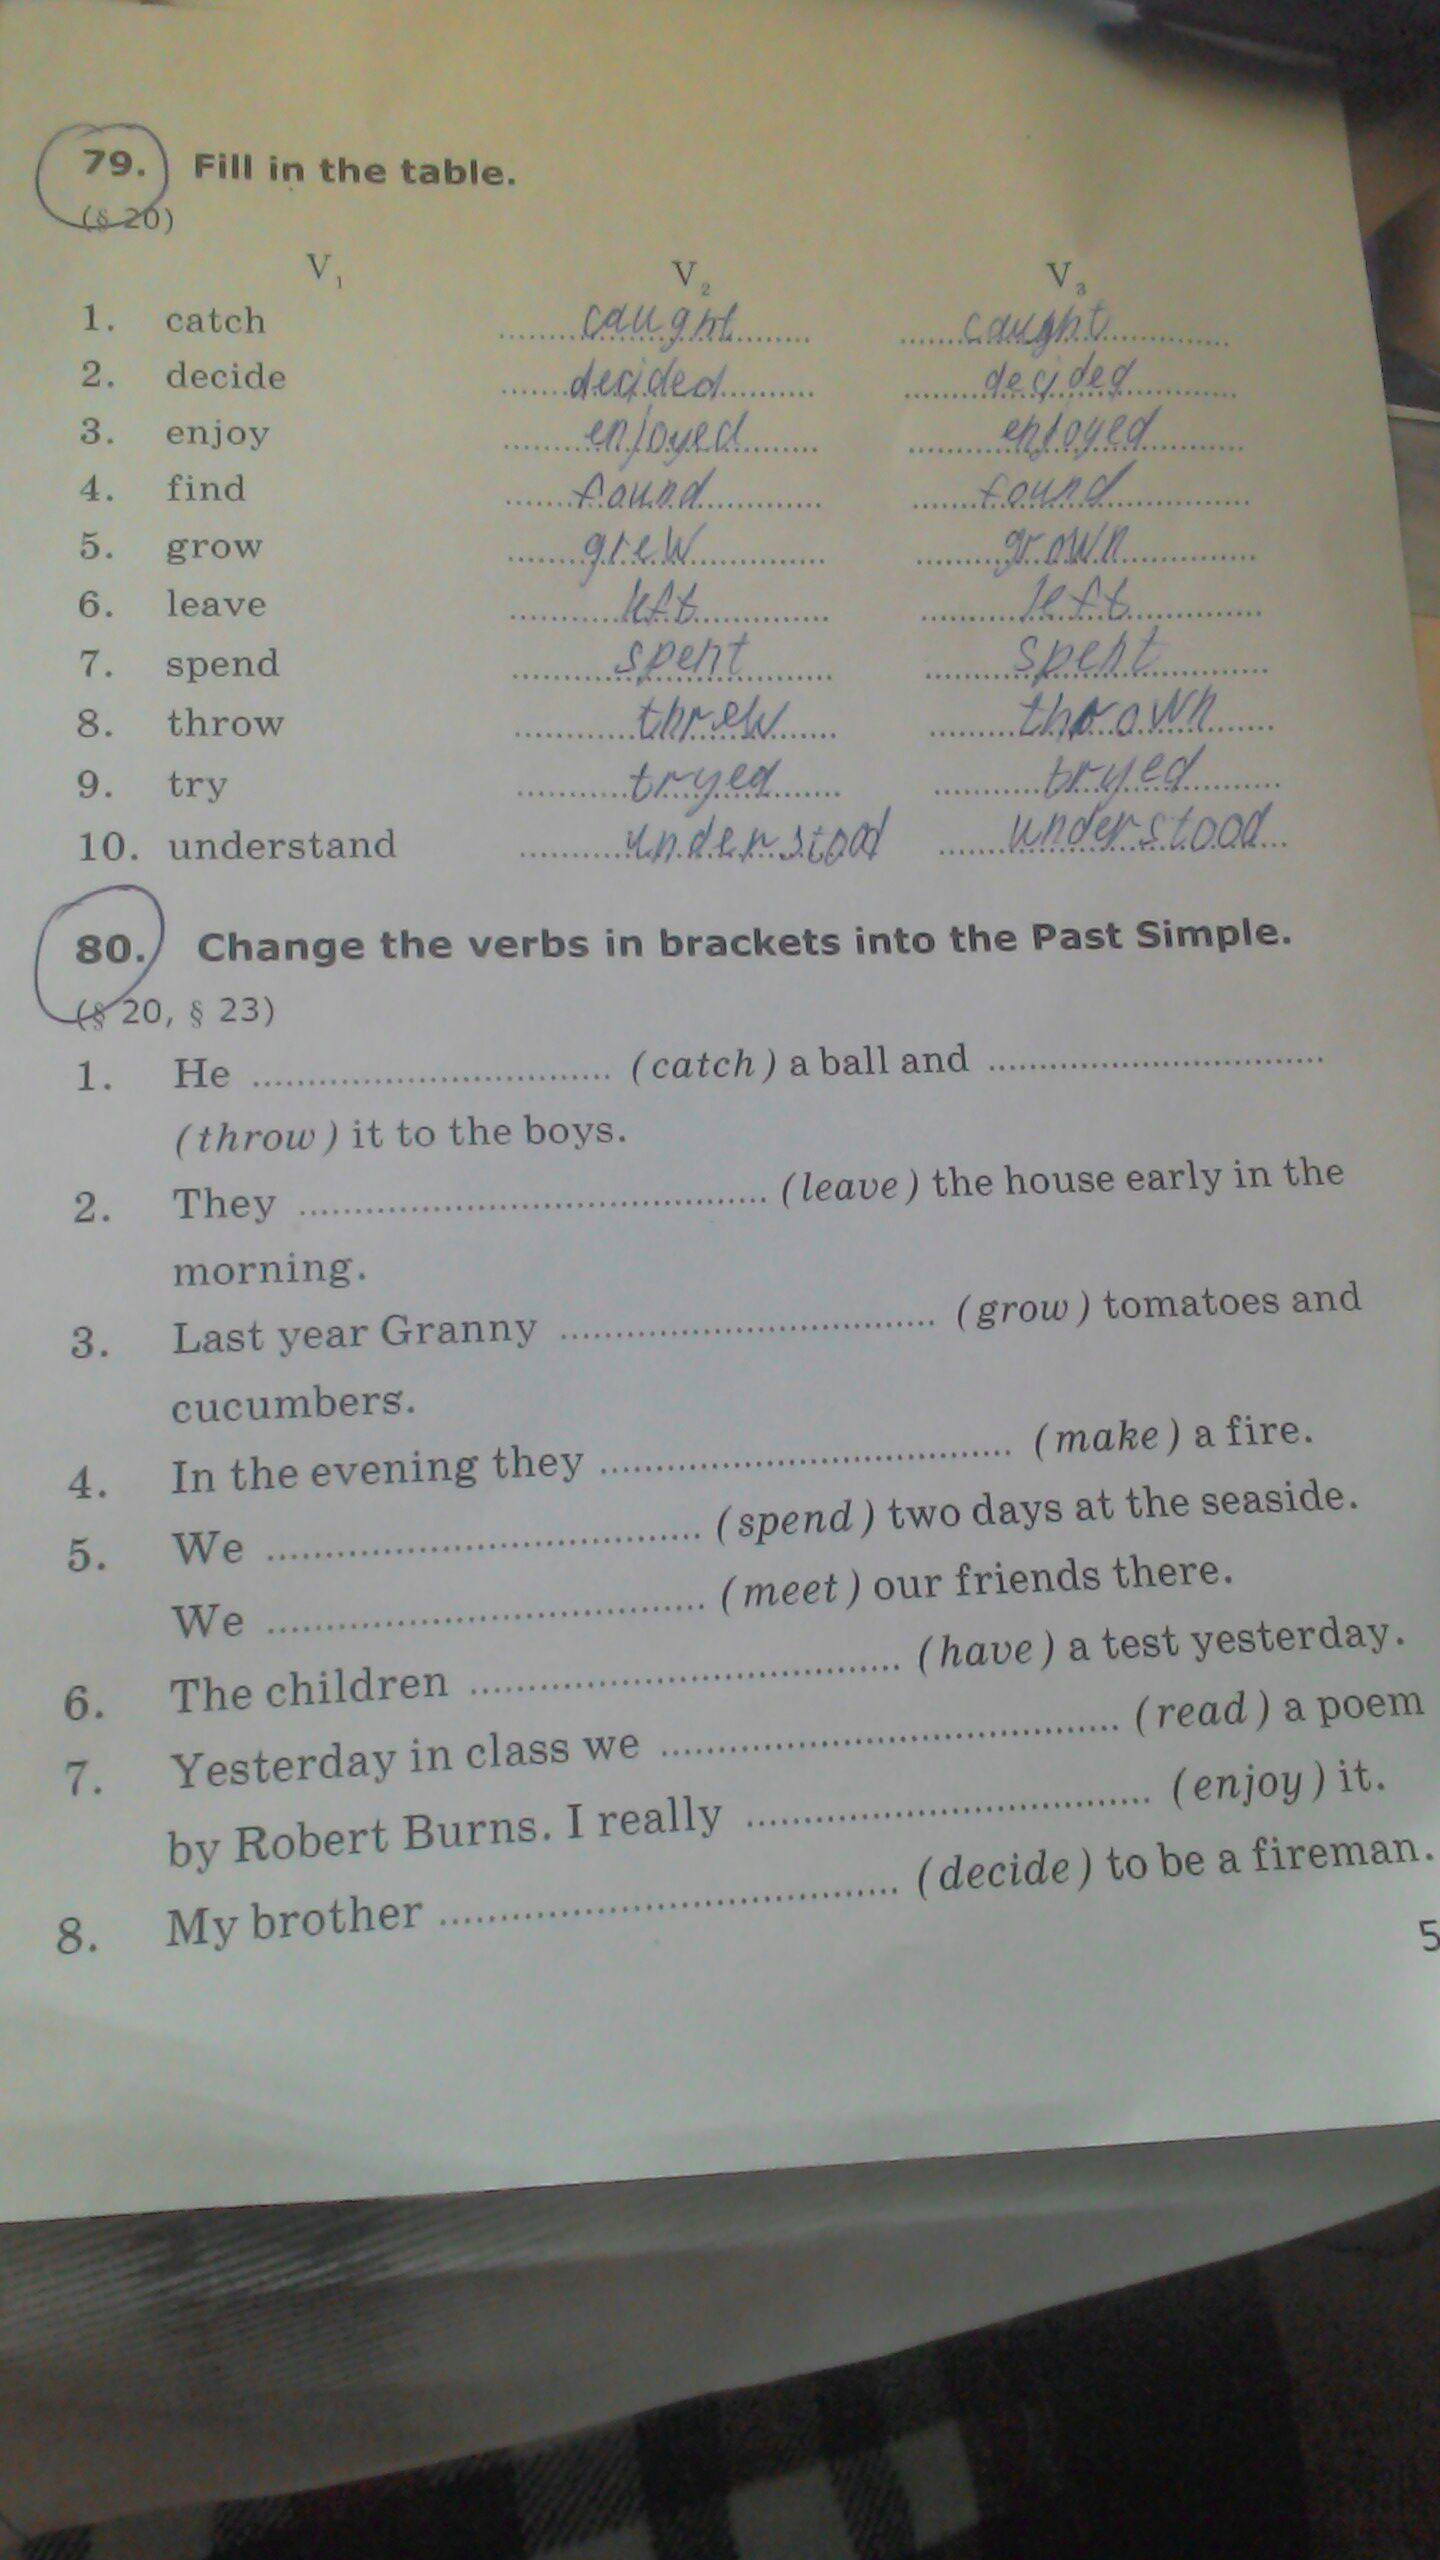 79. Fill in the table.
(§ 20)
V₁ V₂ V₃
1. catch ........ caught ........ ........ caught ........
2. decide ........ decided ........ ........ decided ........
3. enjoy ........ enjoyed ........ ........ enjoyed ........
4. find ........ found ........ ........ found ........
5. grow ........ grew ........ ........ grown ........
6. leave ........ left ........ ........ left ........
7. spend ........ spent ........ ........ spent ........
8. throw ........ threw ........ ........ thrown ........
9. try ........ tryed ........ ........ tryed ........
10. understand ........ understood ........ understood ...
80. Change the verbs in brackets into the Past Simple.
(§ 20, § 23)
1. He ................ (catch) a ball and ................
(throw) it to the boys.
2. They ................ (leave) the house early in the
morning.
3. Last year Granny ................ (grow) tomatoes and
cucumbers.
4. In the evening they ................ (make) a fire.
5. We ................ (spend) two days at the seaside.
We ................ (meet) our friends there.
6. The children ................ (have) a test yesterday.
7. Yesterday in class we ................ (read) a poem
by Robert Burns. I really ................ (enjoy) it.
8. My brother ................ (decide) to be a fireman.
5